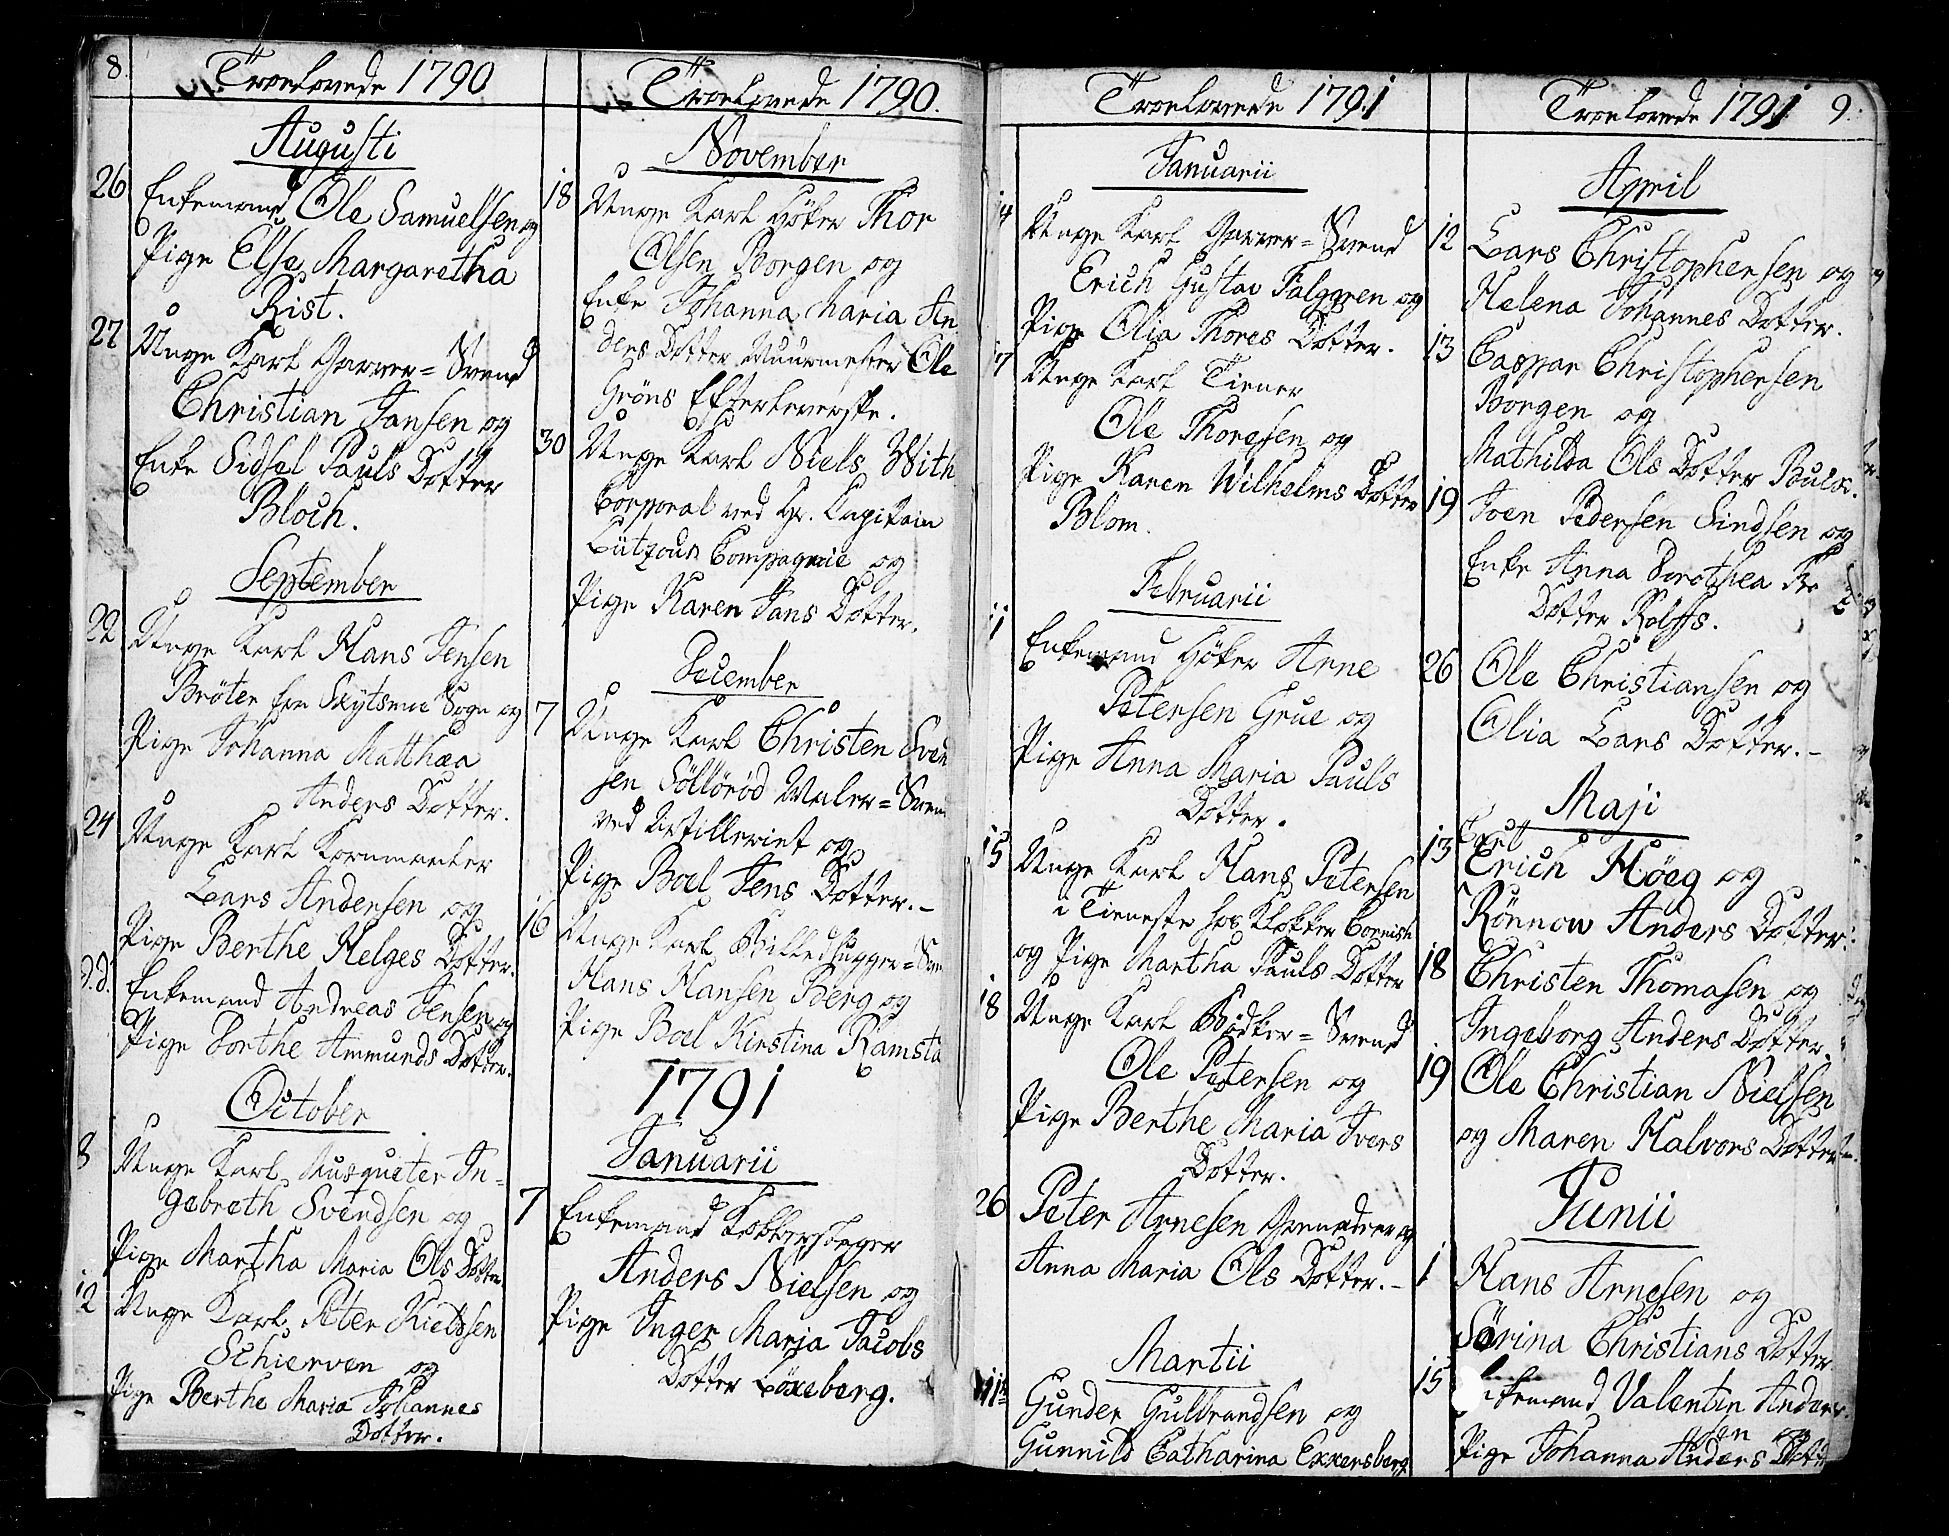 8.
Troelovede 1790
Augusti
26 Enkemand Ole Samuelsen og
Pige Else Margaretha
Rist.
27 Unge Karl Garver=Svend
Christian Jansen og
Enke Sidsel Pauls Dotter
Bloch.
September
22 Unge Karl Hans Jensen
Bröter fra Skytsmie Sogn og
Pige Johanna Matthæa
Anders Dotter.
24 Unge Karl
Lars Andersen og
Pige Berthe Helges Dotter.
d.d. Enkemand Andreas Jensen og
Pige Dorthe Ammunds Dotter.
October
8 Unge Karl Musqueter In-
gebreth Svendsen og
Pige Martha Maria Ols Dotter
12 Unge Karl Peter
Schierven og
Pige Berthe Maria Johannes
Dotter.
Troelovede 1790.
November
18 Unge Karl Höker Thor
Olsen Borgen og
Enke Johanna Maria An
ders Dotter Muurmester Ole
Gröns Efterleverske.
30 Unge Karl Niels With
Corporal ved Hr. Capitain
Lützous Compagnie og
Pige Karen Jans Dotter.
December
7 Unge Karl Christen Svend
sen Söllöröd Maler=Svend
ved Artilleriet og
Pige Boel Jens Dotter.-
16 Unge Karl Billedhugger=Sven
Hans Hansen Berg og
Pige Boel Kirstina Ramsta
1791
Januarii
7 Enkemand Kobberslager
Anders Nielsen og
Pige Inger Maria Jacobs
Dotter Löxeberg.
Troelovede 1791
Januarii
14 Unge Karl Garver=Svend
Erich Gustav Falggren og
Pige Olia Thores Dotter.
17 Unge Karl Tiener
Ole Thoresen og
Pige Karen Wilhelms Dotter
Blom.
Februarii
11 Enkemand Höker Arne
Petersen Grue og
Pige Anna Maria Pauls
Dotter.
15 Unge Karl Hans Petersen
i Tieneste hos Klokker Cornish
og Pige Martha Pauls Dotter
18 Unge Karl Bödker=Svend
Ole Petersen og
Pige Berthe Maria Ivers
Dotter.
26 Peter Arnesen Grenadeer og
Anna Maria Ols Dotter.-
Martii
11te Gunder Gulbrandsen og
Gunnild Catharina Ekkersberg
Troelovede 1791 9.
April
12 Lars Christophersen og
Helena Johannes Dotter.
13 Caspar Christophersen
Borgen og
Mathilda Ols Dotter
19 Iven Pedersen Lindsen og
Enke Anna Dorothea
Dotter Rolffs.
26 Ole Christiansen og
Olia Lars Dotter.-
Maji
Carl
13 Erich Höeg og
Rönnow Anders Dotter.
18 Christen Thomasen og
Ingeborg Anders Dotter.
19 Ole Christian Nielsen
og Maren Halvors Dotter
Junii
1 Hans Arnesen og
Sörina Christians Dotter
15 Enkemand Valentin Anders
sen og
Pige Johanna Anders Dott